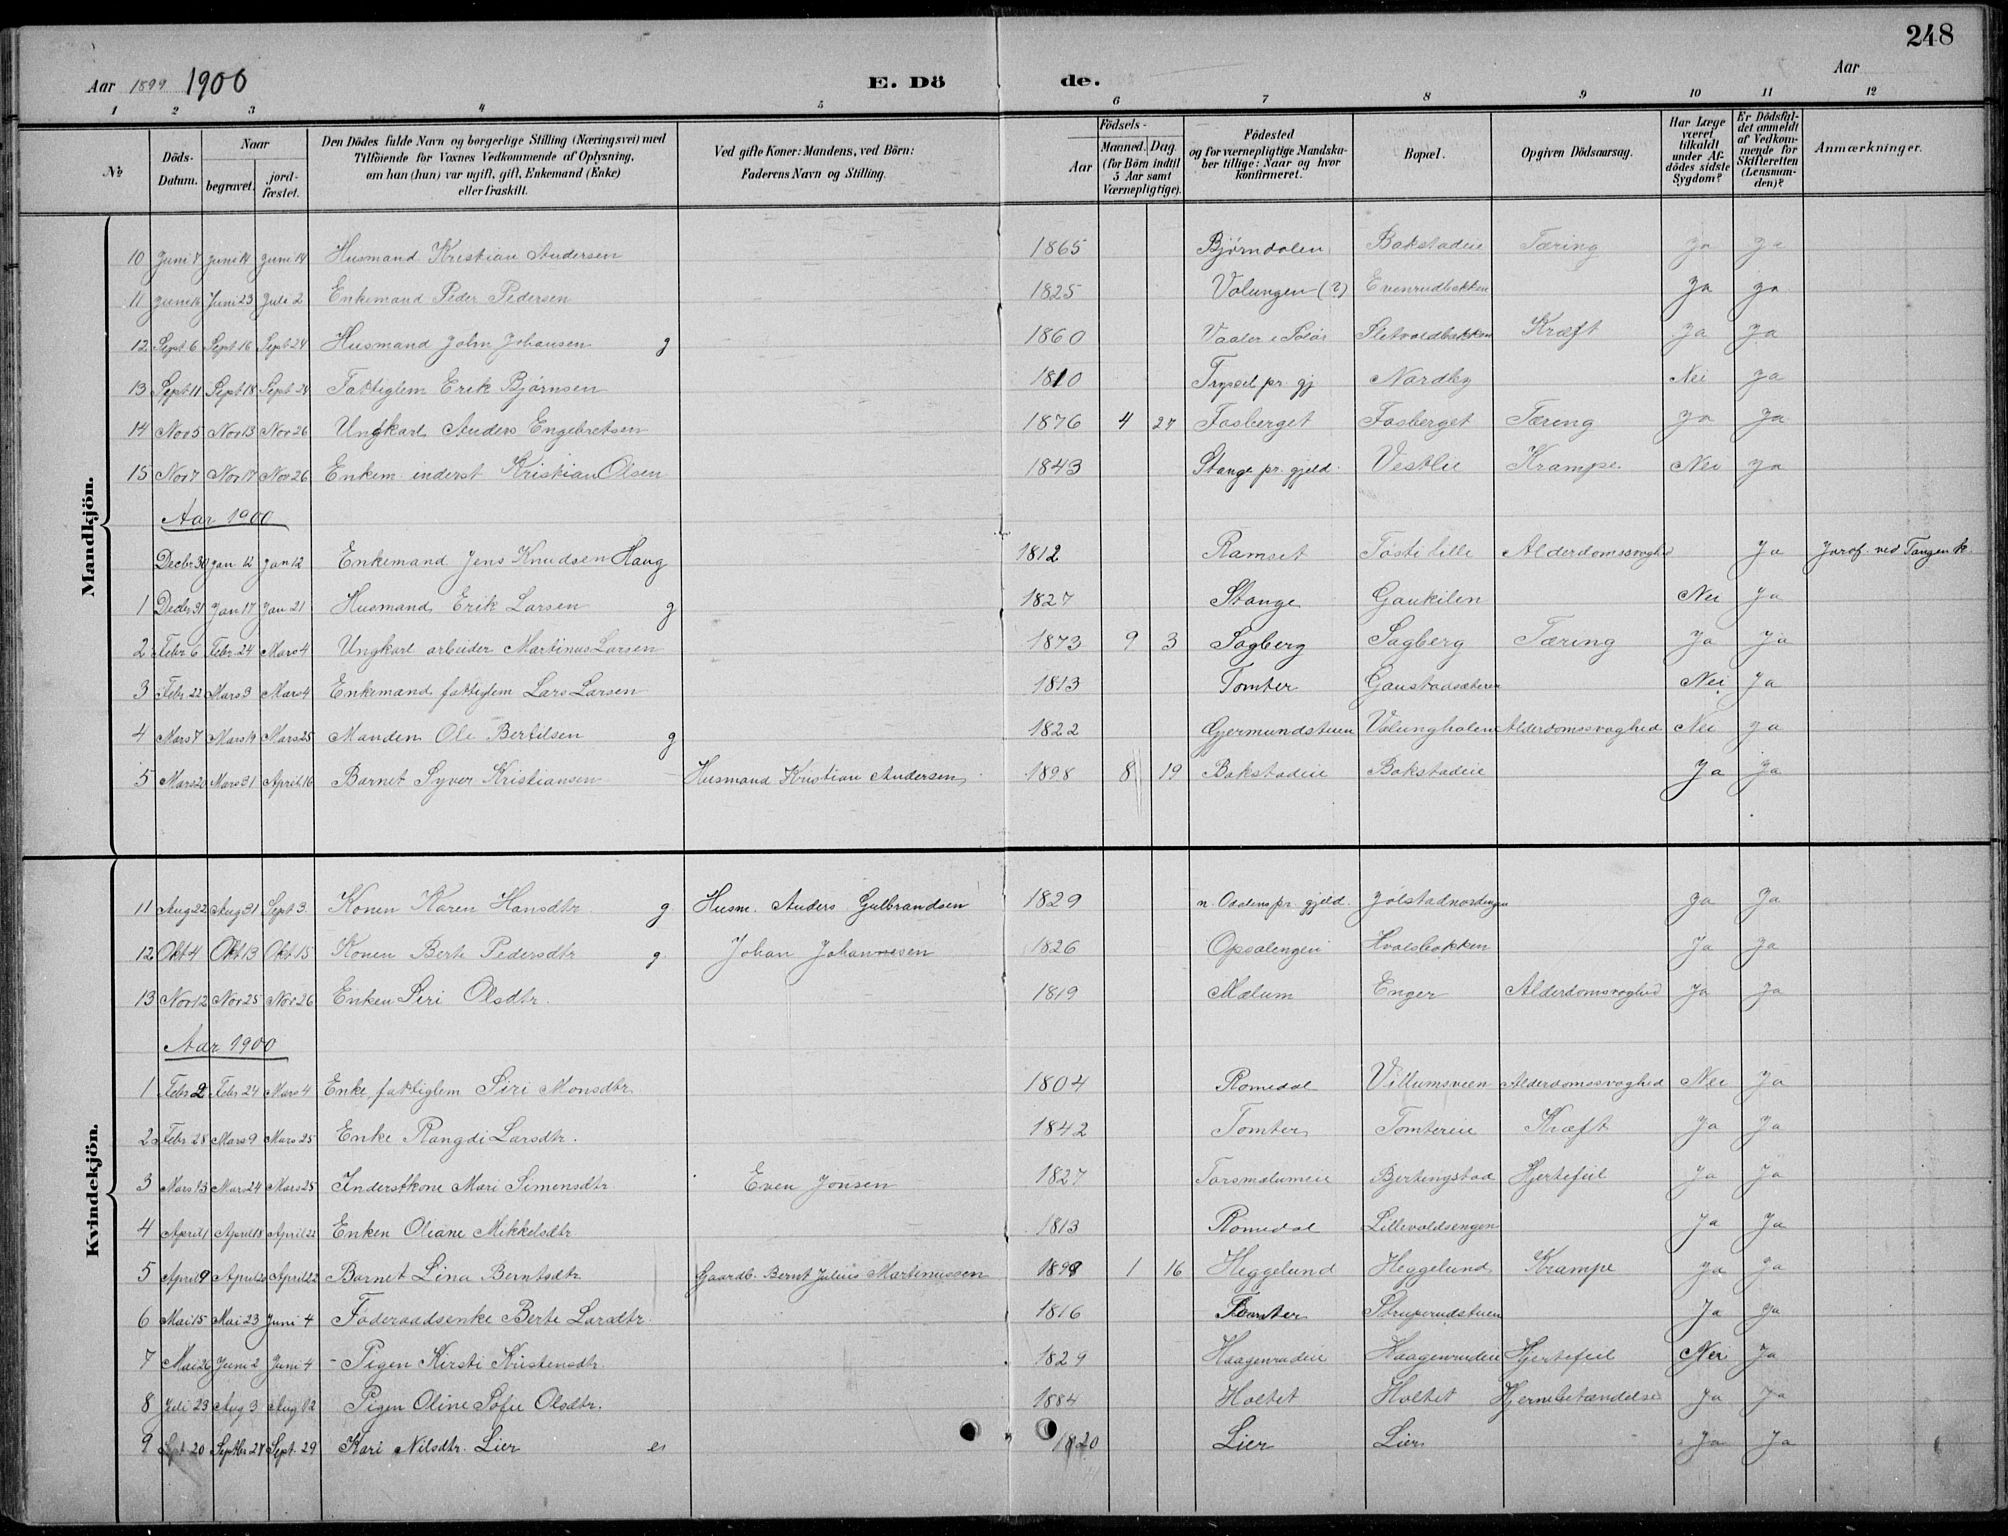 248
Aar 1899 1900 E. Dö de. Aar
1 2 3 4 5 6 7 8 9 10 11 12
№ Döds-Datum. Naar begravet. jord-fæstet. Den Dödes fulde Navn og borgerlige Stilling (Næringsvei) med Tilföiende for Voxnes Vedkommende af Oplysning, om han (hun) var ugift, gift, Enkemand (Enke) eller fraskilt. Ved gifte Koner: Mandens, ved Börn: Faderens Navn og Stilling. Födsels- Aar Maaned. Dag. (for Börn indtil 5 Aar samt Værnepligtige). Födested og for værnepligtige Mandskaber tillige: Naar og hvor konfirmeret. Bopæl. Opgiven Dödsaarsag. Har Læge været tilkaldt under Afdödes sidste Sygdom? Er Dödsfaldet anmeldt af Vedkommende for Skifteretten (Lensmanden)? Anmærkninger.
Mandkjön.
10 Juni 7 Juni 14 Juni 14 Husmand Kristian Andersen 1865 Bjørndalen Bakstadeie Tæring Ja Ja
11 Juni 16 Juni 23 Juli 2 Enkemand Peder Pedersen 1825 Volungen (?) Evenrudbakken Ja Ja
12 Sept 6 Sept 16 Sept 24 Husmand John Johansen g 1860 Vaaler i Solør Sletvoldbakken Kræft Ja Ja
13 Sept 11 Sept 18 Sept 24 Fattiglem Erik Bjørnsen 1810 Trysil pr. gj Nordby Nei Ja
14 Nov 5 Nov 13 Nov 26 Ungkarl Anders Engebretsen 1876 4 27 Fosberget Fosberget Tæring Ja Ja
15 Nov 7 Nov 17 Nov 26 Enkem. inderst Kristian Olsen 1843 Stange pr. gjeld. Vestlie Krampe Nei Ja
Aar 1900
Decbr 30 Jan 12 Jan 12 Enkemand Jens Knudsen Haug 1812 Ramset Tøsti lille Alderdomssvaghed Ja Jordf. ved Tangen k.
1 Decbr 31 Jan 17 Jan 21 Husmand Erik Larsen g 1827 Stange Gaukilen Nei Ja
2 Febr 6 Febr. 24 Mars 4 Ungkarl arbeider Martinus Larsen 1873 9 3 Sagberg Sagberg Tæring Ja Ja
3 Febr 22 Mars 3 Mars 4 Enkemand fattiglem Lars Larsen 1813 Tomter Gaustadsæteren Nei Ja
4 Mars 7 Mars 14 Mars 25 Manden Ole Bertilsen g 1822 Gjermundstuen Volungholen Alderdomssvaghed Nei Ja
5 Mars 20 Mars 31 April 16 Barnet Syver Kristiansen Husmand Kristian Andersen 1898 8 19 Bakstadeie Bakstadeie Ja Ja
Kvindekjön.
11 Aug 22 Aug 31 Sept 3. Konen Karen Hansdtr g Husm. Anders Gulbrandsen 1829 n. Odalens pr. gjeld. Jølstadnordengen Ja Ja
12 Okt 4 Okt 13 Okt 15 Konen Berte Pedersdtr g Johan Johannesen 1826 Opsalengen Hvalsbakken Ja Ja
13 Nov 12 Nov 25 Nov 26 Enken Siri Olsdtr. 1819 Mælum Enger Alderdomsvaghed Ja Ja
Aar 1900
1 Febr 2 Febr 24 Mars 4 Enke, fattiglem Siri Monsdtr 1804 Romedal Villumsveen Alderdomssvaghed Nei Ja
2 Febr 28 Mars 9 Mars 25 Enke Rangdi Larsdtr. 1842 Tomter Tomtereie Kræft Ja Ja
3 Mars 13 Mars 24 Mars 25 Inderstkone Mari Simensdtr Even Jonsen 1827 Torsmælumeie Bjertingstad Hjertefeil Ja Ja
4 April 1 April 18 April 22 Enken Oliane Mikkelsdtr 1813 Romedal Lillevoldsengen Ja Ja
5 April 9 April 20 April 22 Barnet Lina Berntsdtr Gaardb. Bernt Julius Martinussen 1898 1 16 Heggelund Heggelund Krampe Ja Ja
6 Mai 15 Mai 23 Juni 4 Føderaadsenke Berte Larsdtr. 1816 Tomter Struperudstuen Ja Ja
7 Mai 26 Juni 2 Juni 4 - Pigen Kirsti Kristensdtr. 1829 Haagenrudeie Haagenrudeie Hjertefeil Nei Ja
8 Juli 23 Aug 3 Aug 12 Pigen Oline Sofie Olsdtr. 1884 Holtet Holtet Hjernebetændelse Ja Ja
9 Sept 20 Septbr 27 Sept. 29 Kari Nilsdtr. Lier e 1820 Lier Lier Ja Ja